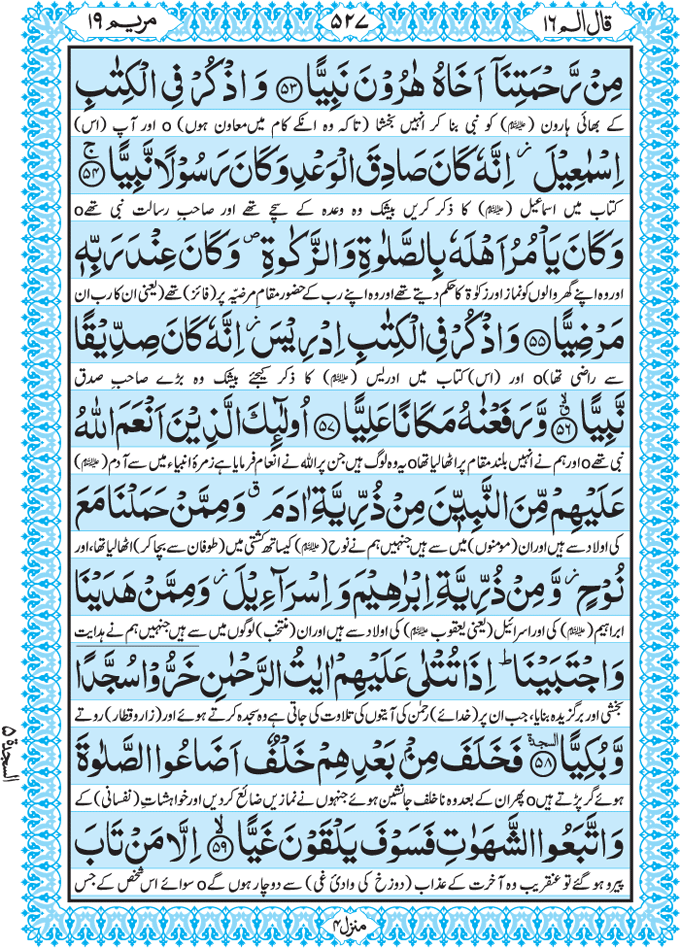 قال الم ۱۶
۵۲۷
مریم ۱۹
مِنْ رَّحْمَتِنَاۤ اَخَاهُ هٰرُوْنَ نَبِيًّا ﴿۵۳﴾ وَ اذْكُرْ فِی الْكِتٰبِ
کے بھائی ہارون (علیہ السلام) کو نبی بنا کر انہیں بخشا (تاکہ وہ انکے کام میں معاون ہوں) o اور آپ (اس)
اِسْمٰعِيْلَ ؗ اِنَّهٗ كَانَ صَادِقَ الْوَعْدِ وَ كَانَ رَسُوْلًا نَّبِيًّا ﴿۵۴﴾ۚ
کتاب میں اسماعیل (علیہ السلام) کا ذکر کریں بیشک وہ وعدہ کے سچے تھے اور صاحبِ رسالت نبی تھے o
وَ كَانَ يَاْمُرُ اَهْلَهٗ بِالصَّلٰوةِ وَ الزَّكٰوةِ ۪ وَ كَانَ عِنْدَ رَبِّهٖ
اور وہ اپنے گھر والوں کو نماز اور زکوٰۃ کا حکم دیتے تھے اور وہ اپنے رب کے حضور مقامِ مرضیّہ پر (فائز) تھے (یعنی ان کا رب ان
مَرْضِيًّا ﴿۵۵﴾ وَ اذْكُرْ فِی الْكِتٰبِ اِدْرِيْسَ ؗ اِنَّهٗ كَانَ صِدِّيْقًا
سے راضی تھا) o اور (اس) کتاب میں ادریس (علیہ السلام) کا ذکر کیجئے بیشک وہ بڑے صاحبِ صدق
نَّبِيًّا ﴿۵۶﴾ۗۙ وَّ رَفَعْنٰهُ مَكَانًا عَلِيًّا ﴿۵۷﴾ اُولٰٓىِٕكَ الَّذِيْنَ اَنْعَمَ اللّٰهُ
نبی تھے o اور ہم نے انہیں بلند مقام پر اٹھا لیا تھا o یہ وہ لوگ ہیں جن پر اللہ نے انعام فرمایا ہے زمرۂ انبیاء میں سے آدم (علیہ السلام)
عَلَيْهِمْ مِّنَ النَّبِيّٖنَ مِنْ ذُرِّيَّةِ اٰدَمَ ۗ وَ مِمَّنْ حَمَلْنَا مَعَ
کی اولاد سے ہیں اور ان (مومنوں) میں سے ہیں جنہیں ہم نے نوح (علیہ السلام) کیساتھ کشتی میں (طوفان سے بچا کر) اٹھا لیا تھا، اور
نُوْحٍ ؗ وَّ مِنْ ذُرِّيَّةِ اِبْرٰهِيْمَ وَ اِسْرَآءِيْلَ ؗ وَ مِمَّنْ هَدَيْنَا
ابراہیم (علیہ السلام) کی اور اسرائیل (یعنی یعقوب علیہ السلام) کی اولاد سے ہیں اور ان (منتخب) لوگوں میں سے ہیں جنہیں ہم نے ہدایت
وَ اجْتَبَيْنَا ؕ اِذَا تُتْلٰی عَلَيْهِمْ اٰيٰتُ الرَّحْمٰنِ خَرُّوْا سُجَّدًا
بخشی اور برگزیدہ بنایا، جب ان پر (خدائے) رحمٰن کی آیتوں کی تلاوت کی جاتی ہے وہ سجدہ کرتے ہوئے اور (زار و قطار) روتے
وَّ بُكِيًّا ﴿۵۸﴾ السجدة فَخَلَفَ مِنْۢ بَعْدِهِمْ خَلْفٌ اَضَاعُوا الصَّلٰوةَ
ہوئے گر پڑتے ہیں o پھر ان کے بعد وہ ناخلف جانشین ہوئے جنہوں نے نمازیں ضائع کر دیں اور خواہشاتِ (نفسانی) کے
وَ اتَّبَعُوا الشَّهَوٰتِ فَسَوْفَ يَلْقَوْنَ غَيًّا ﴿۵۹﴾ۙ اِلَّا مَنْ تَابَ
پیرو ہو گئے تو عنقریب وہ آخرت کے عذاب (دوزخ کی وادئ غی) سے دوچار ہوں گے o سوائے اس شخص کے جس
السجدة ۵
منزل ۴